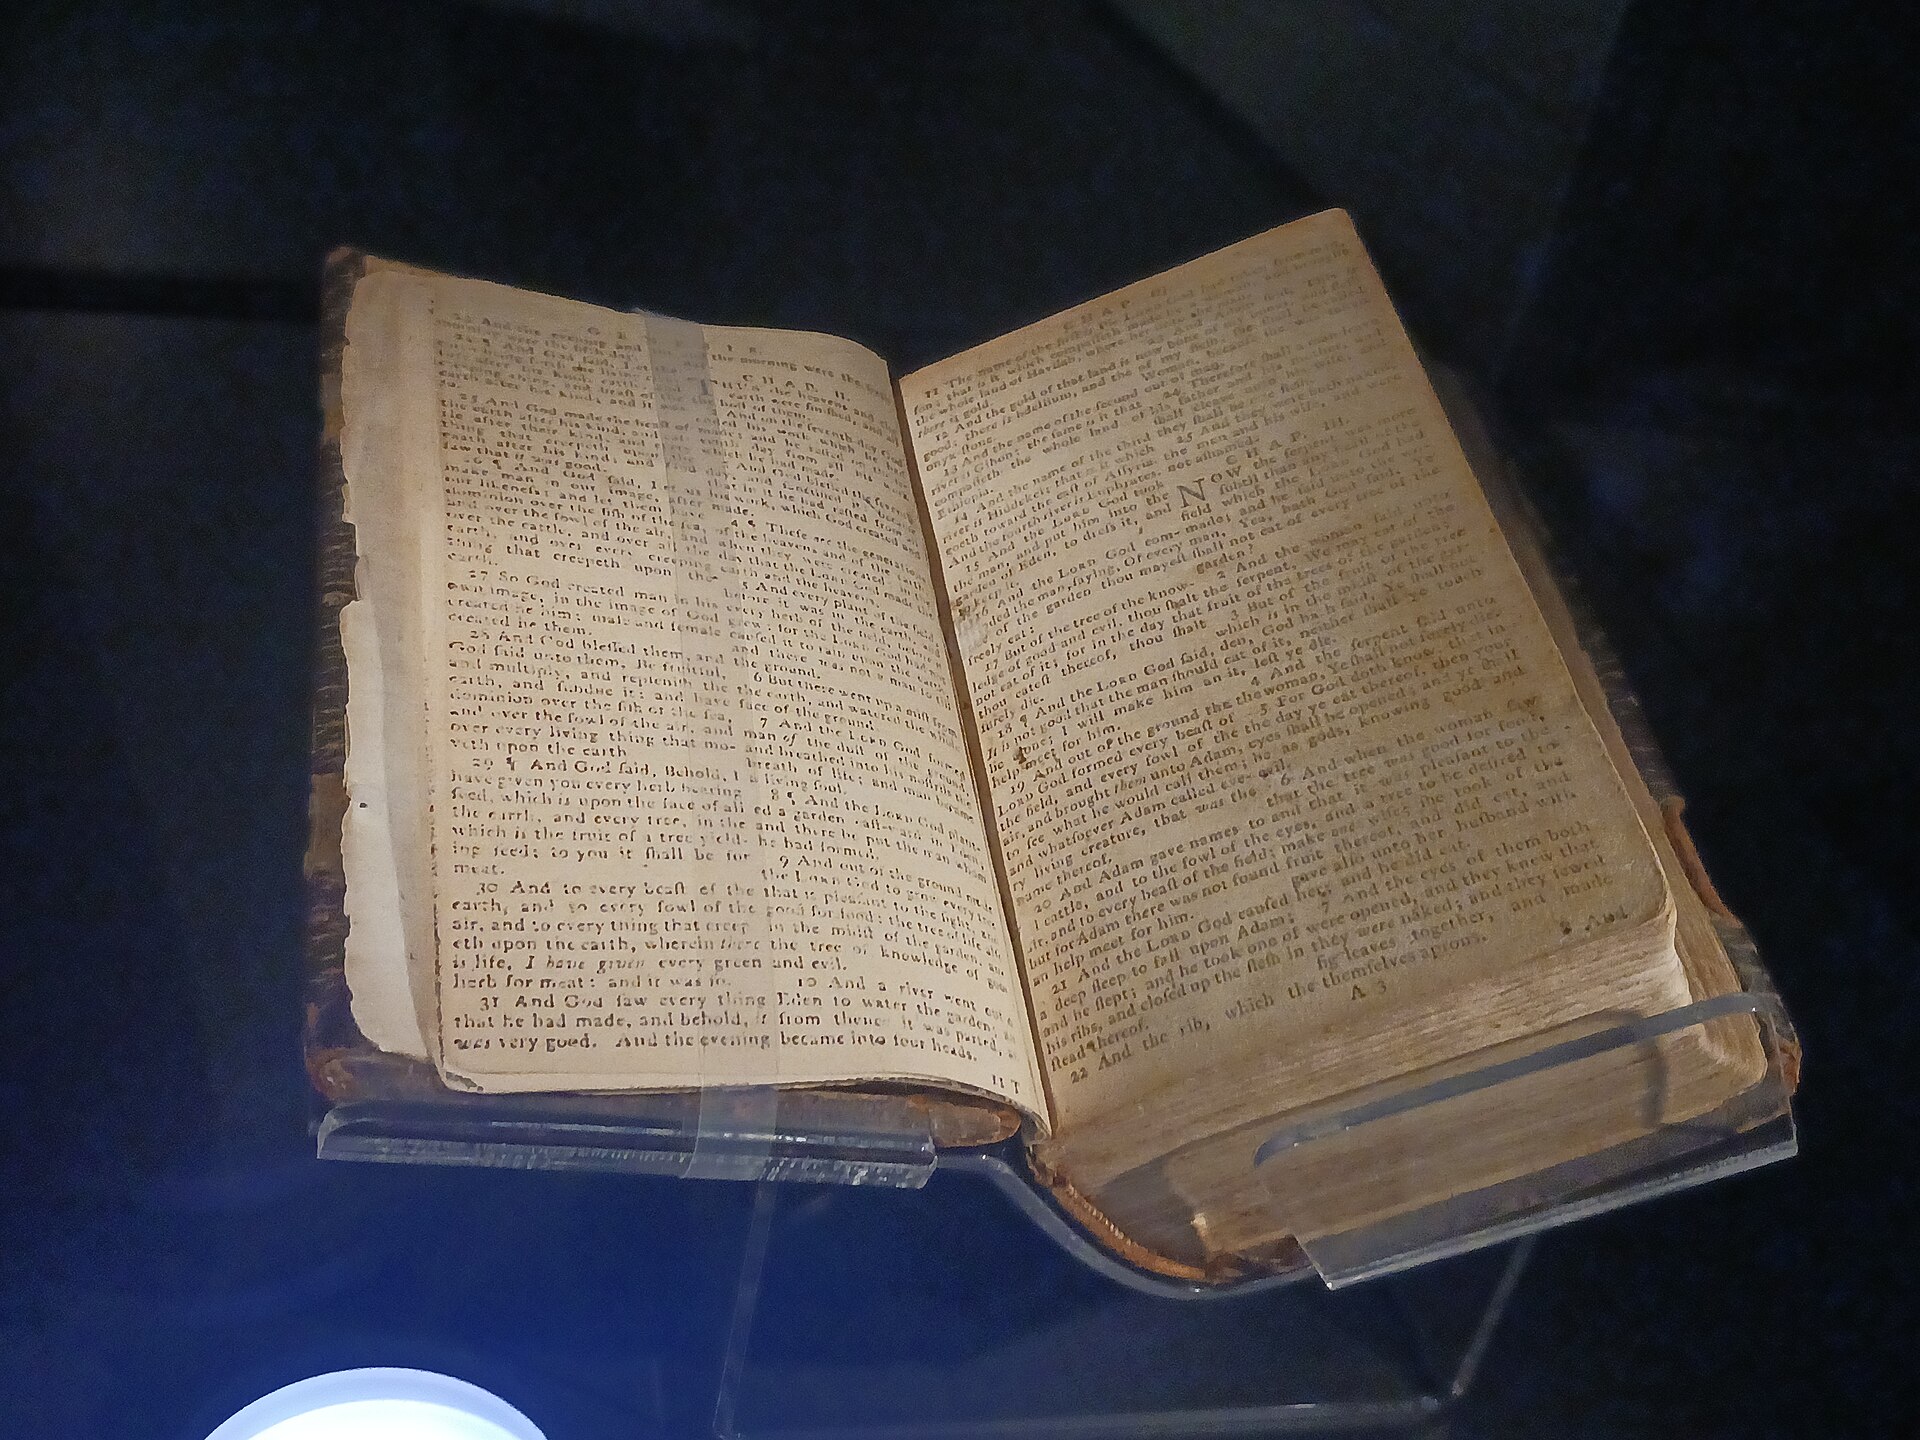 23 And the evening and
morning were the fifth day.
24 ¶ And God ſaid, Let the
25 And God made the beaſt of
the earth after his kind, and
tle after their kind, and
thing that creepeth upon
earth after his kind: and God
ſaw that it was good.
26 ¶ And God ſaid, Let us
make man in our image, after
our likeneſs: and let them have
dominion over the fiſh of the ſea,
and over the fowl of the air, and
over the cattle, and over all the
earth, and over every creeping
thing that creepeth upon the
earth.
27 So God created man in his
own image, in the image of God
created he him; male and female
created he them.
28 And God bleſſed them, and
God ſaid unto them, Be fruitful,
and multiply, and repleniſh the
earth, and ſubdue it: and have
dominion over the fiſh of the ſea,
and over the fowl of the air, and
over every living thing that mo-
veth upon the earth
29 ¶ And God ſaid, Behold, I
have given you every herb bearing
ſeed, which is upon the face of all
the earth, and every tree, in the
which is the fruit of a tree yield-
ing ſeed; to you it ſhall be for
meat.
30 And to every beaſt of the
earth, and to every fowl of the
air, and to every thing that creep
eth upon the earth, wherein there
is life, I have given every green
herb for meat: and it was ſo.
31 And God ſaw every thing
that he had made, and behold, it
was very good. And the evening
the morning were the
C H A P. II.
THUS the heavens and the
earth were finiſhed, and all
hoſt of them.
And on the ſeventh day God
ended his work which he had
made; and he reſted on the
day from all his work
which he had made.
And God bleſſed the ſeventh
day, and ſanctified it; becauſe
that in it he had reſted from all
his work, which God created and
made.
4 ¶ Theſe are the generations
of the heavens and of the earth
when they were created, in the
day that the LORD God made the
earth and the heavens,
5 And every plant of the field,
before it was in the earth, and
every herb of the field before it
grew: for the LORD God had not
cauſed it to rain upon the earth,
and there was not a man to till
the ground.
6 But there went up a miſt from
the earth, and watered the whole
face of the ground.
7 And the LORD God formed
man of the duſt of the ground,
and breathed into his noſtrils the
breath of life; and man became
a living ſoul.
8 ¶ And the LORD God plant-
ed a garden eaſtward in Eden;
and there he put the man whom
he had formed.
9 And out of the ground made
the LORD God to grow every tree
that is pleaſant to the ſight, and
good for food; the tree of life alſo
in the midſt of the garden, and
the tree of knowledge of good
and evil.
10 And a river went out of
Eden to water the garden; and
from thence it was parted, and
became into four heads.
11 T
11 The name of the firſt is Pi-
ſon: that is it which compaſſeth
the whole land of Havilah, where
there is gold.
12 And the gold of that land is
good: there is bdellium, and the
onyx ſtone.
13 And the name of the ſecond
river is Gihon: the ſame is it that
compaſſeth the whole land of
Ethiopia.
14 And the name of the third
river is Hiddekel: that is it which
goeth toward the eaſt of Aſſyria.
And the fourth river is Euphrates.
15 And the LORD God took
the man, and put him into the
garden of Eden, to dreſs it, and
to keep it.
16 And the LORD God com-
manded the man, ſaying, Of every
tree of the garden thou mayeſt
freely eat:
17 But of the tree of the know-
ledge of good and evil, thou ſhalt
not eat of it: for in the day that
thou eateſt thereof, thou ſhalt
ſurely die.
18 ¶ And the LORD God ſaid,
It is not good that the man ſhould
be alone; I will make him an
help meet for him.
19 And out of the ground the
LORD God formed every beaſt of
the field, and every fowl of the
air, and brought them unto Adam,
to ſee what he would call them;
and whatſoever Adam called eve-
ry living creature, that was the
name thereof.
20 And Adam gave names to
all cattle, and to the fowl of the
air, and to every beaſt of the field;
but for Adam there was not found
an help meet for him.
21 And the LORD God cauſed
a deep ſleep to fall upon Adam,
and he ſlept; and he took one of
his ribs, and cloſed up the fleſh in-
ſtead thereof.
22 And the rib, which the
C H A P. III.
NOW the ſerpent was more
ſubtil than any beaſt of the
field which the LORD God had
made: and he ſaid unto the wo-
man, Yea, hath God ſaid, Ye
ſhall not eat of every tree of the
garden?
2 And the woman ſaid unto
the ſerpent, We may eat of the
fruit of the trees of the garden:
3 But of the fruit of the tree
which is in the midſt of the gar-
den, God hath ſaid, Ye ſhall not
eat of it, neither ſhall ye touch
it, leſt ye die.
4 And the ſerpent ſaid unto
the woman, Ye ſhall not ſurely die.
5 For God doth know, that in
the day ye eat thereof, then your
eyes ſhall be opened; and ye ſhall
be as gods, knowing good and
evil.
6 And when the woman ſaw
that the tree was good for food,
and that it was pleaſant to the
eyes, and a tree to be deſired to
make one wiſe; ſhe took of the
fruit thereof, and did eat, and
gave alſo unto her huſband with
her; and he did eat.
7 And the eyes of them both
were opened, and they knew that
they were naked; and they ſewed
fig leaves together, and made
themſelves aprons.
8 And
A 3